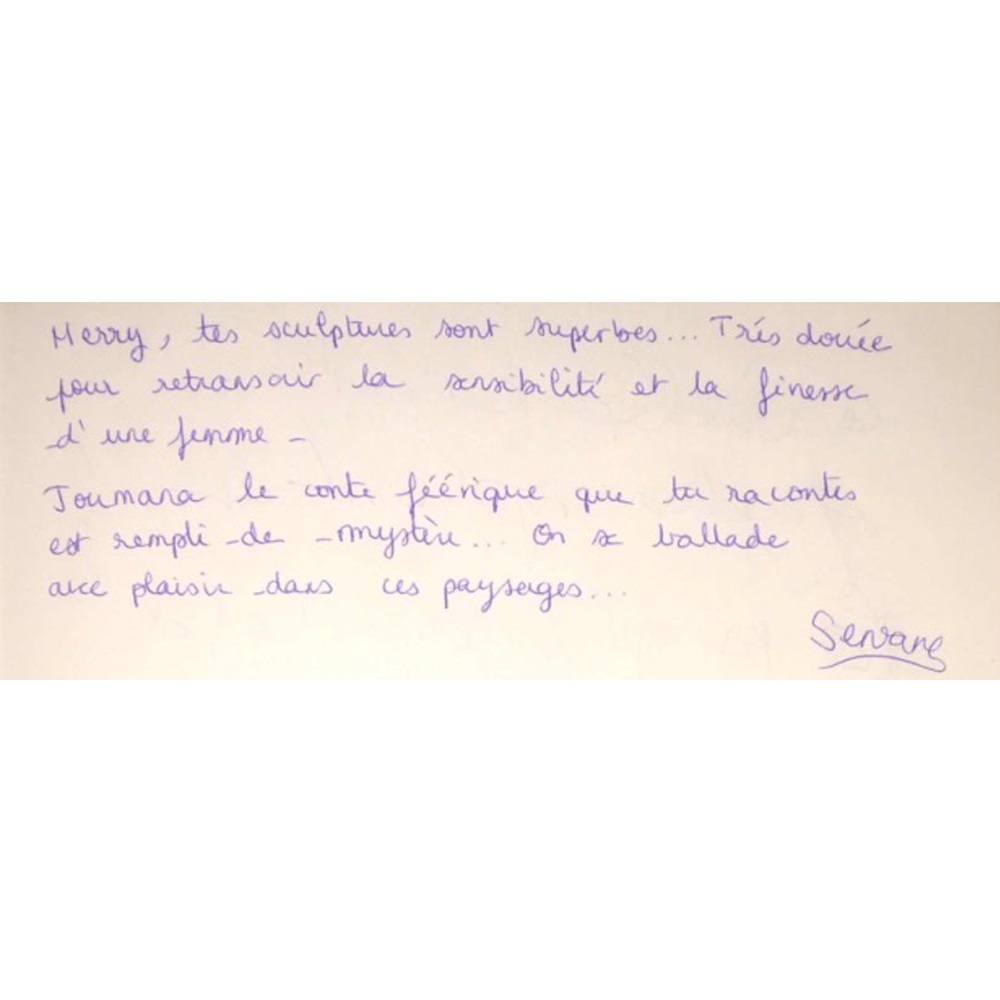 Merry, tes sculptures sont superbes... Trés douée
pour retransoir la sensibilité et la finesse
d'une femme -
Joumana le conte féérique que tu racontes
est rempli de mystère... On se ballade
avec plaisir dans ces paysages...
Servane